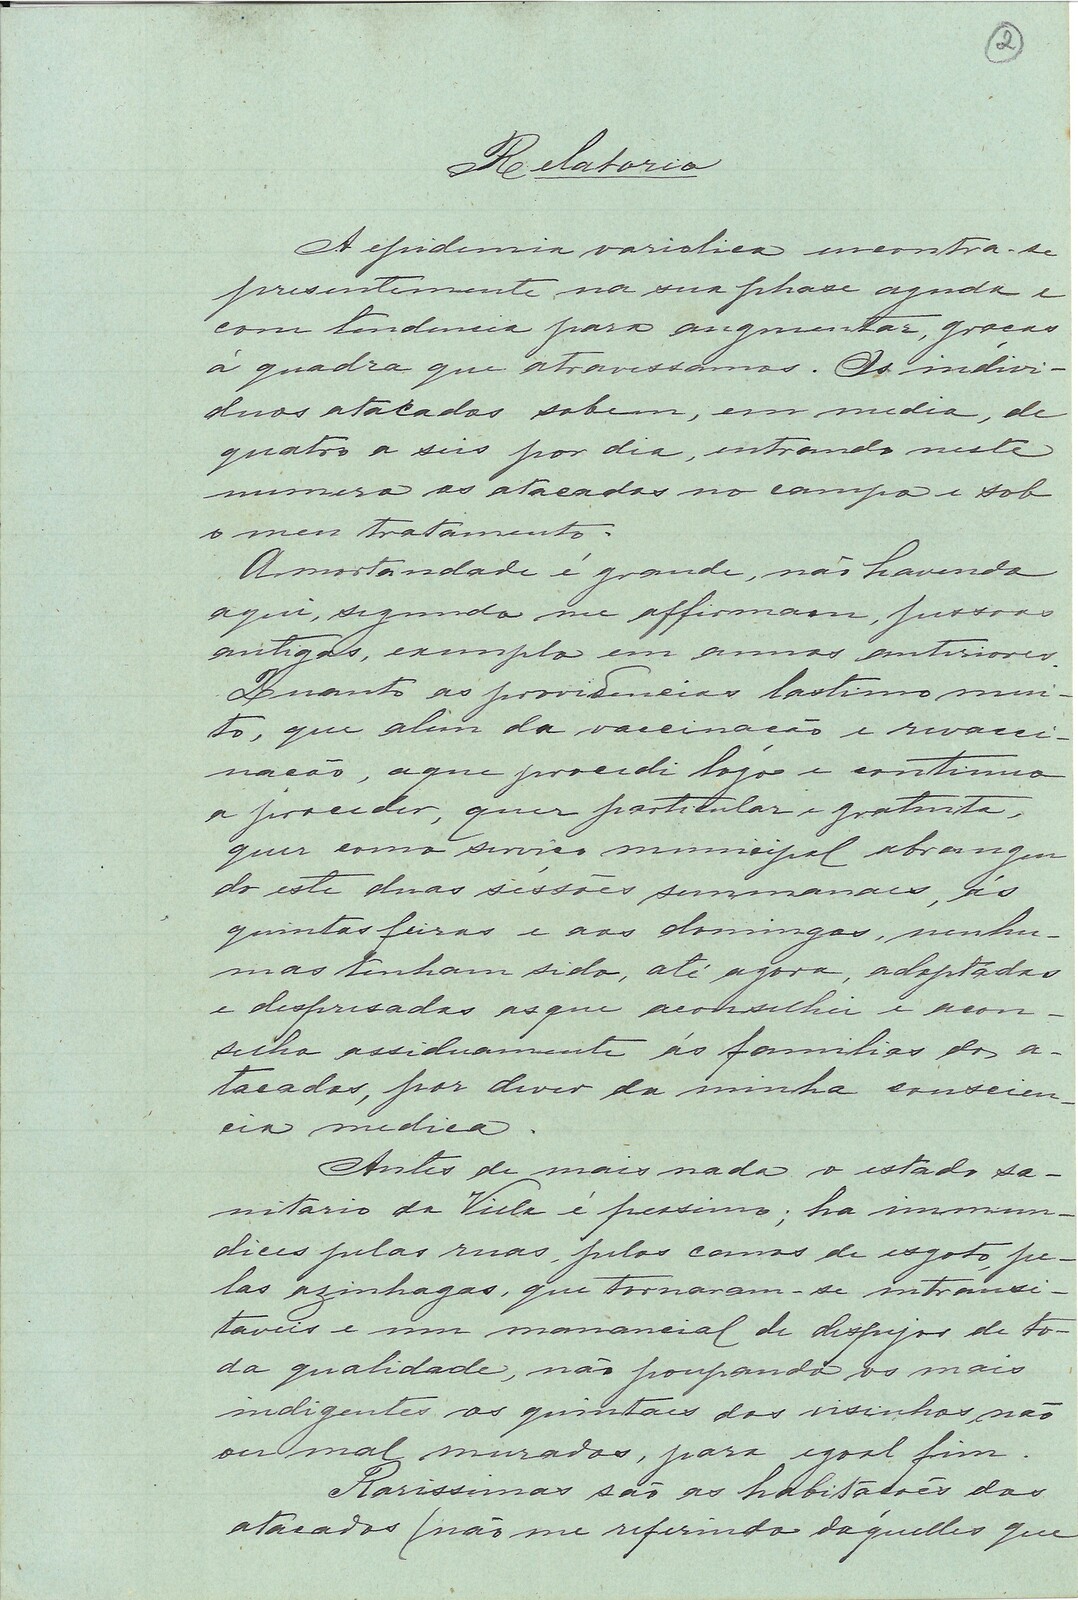 2
Relatorio
A epidemia variolica encontra-se
presentemente na sua phase aguda e
com tendencia para augmentar, graças
á quadra que atravessamos. Os indivi-
duos atacados sobem, em media, de
quatro a seis por dia, entrando neste
numero os atacados no campo e sob
o meu tratamento.
A mortandade é grande, não havendo
aqui, segundo me affirmam, pessoas
antigas, exemplo em annos anteriores.
Quanto as providencias lastimo mui-
to, que alem da vaccinação e revacci-
nação, a que procedi lógo e continuo
a proceder, quer particular e gratuita,
quer como serviço municipal abrangen
do este duas séssões semmanaes, ás
quintas feiras e aos domingos, nenhu-
mas tenham sido, até agora, adoptadas
e despresadas as que aconselhei e acon-
selho assiduamente ás familias dos a-
tacados, por dever da minha conscien-
cia medica.
Antes de mais nada o estado sa-
nitario da Villa é pessimo; ha immun-
dices pelas ruas, pelos canos de esgoto, pe-
las azinhagas, que tornaram-se intransi-
taveis e um manancial de despejos de to-
da qualidade, não poupando os mais
indigentes os quintaes dos visinhos, não
ou mal murados, para egoal fim.
Rarissimas são as habitacões dos
atacados (não me referindo dáquelles que